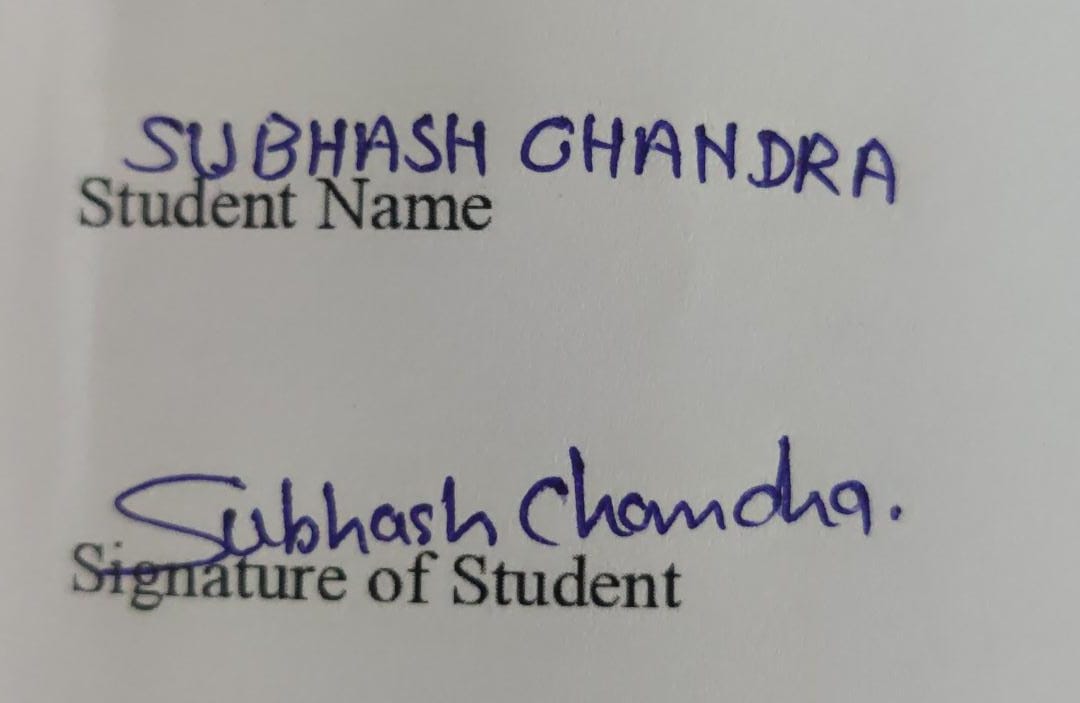 SUBHASH CHANDRA
Student Name
Subhash Chandra.
Signature of Student